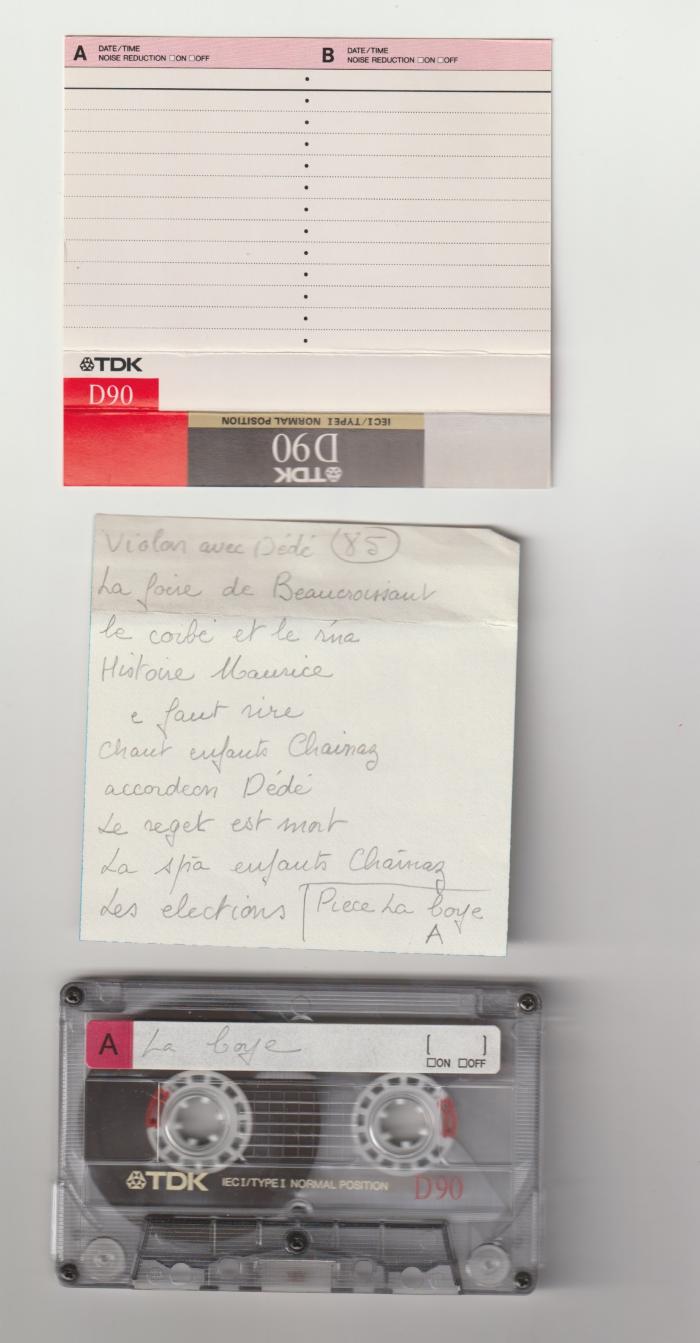 A DATE/TIME
NOISE REDUCTION □ON □OFF
B DATE/TIME
NOISE REDUCTION □ON □OFF
TDK
D90
IECI/TYPEI NORMAL POSITION
D90
TDK
Violon avec Dédé 85
La foire de Beaucroissant
le corbé et le
Histoire Maurice
e faut rire
chant enfants Chainaz
accordeon Dédé
Le reget est mort
La spa enfants Chainaz
Les elections Piece La boye
A
A La boye [ ]
□ON □OFF
TDK IECI/TYPEI NORMAL POSITION D90